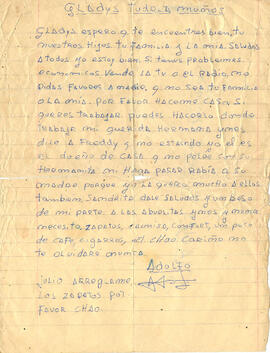 GLADYS TUDELA MUÑOS
GLADYS ESPERO Q. TE ENCUENTRES BIEN, TU
NUESTROS HIJOS TU FAMILIA Y LA MIA. SALUDOS
A TODOS YO ESTOY BIEN. SI TENES PROBLEMAS
ECONOMICOS VENDE LA TV O EL RADIO, NO
PIDAS FAVORES A NADIE, NO SEA TU FAMILIA
O LA MIA. POR FAVOR HACEME CASO. SI
QUERES TRABAJAR PUEDES HACERLO DONDE
TRABAJA MI QUERIDA HERMANA YNES
DILE A FREDDY Q NO ESTANDO YO EL ES
EL DUEÑO DE CASA Q NO PELEE CON SU
HERMANITA NI HAGA PASAR RABIA A SU
MADRE PORQUE YO LA QUIERO MUCHO A ELLOS
TAMBIEN SANDRITA DALE SALUDOS Y UN BESO
DE MI PARTE. A LAS ABUELITAS YNES Y
NECESITO, ZAPATOS, CAMISA, CONFORT, UN POCO
DE CAFE, CIGARRO, CHAO CARIÑO NO
TE OLVIDARE NUNCA.
ADOLFO
JULIO ARREGLAME
LOS ZAPATOS POR
FAVOR CHAO